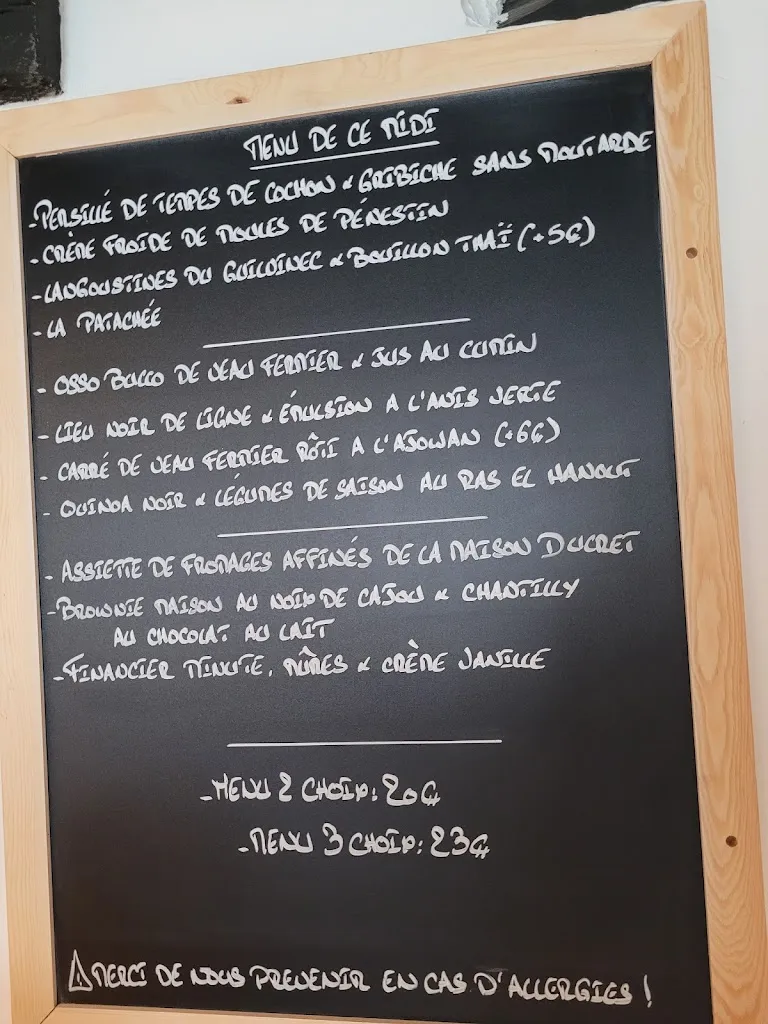 MENU DE CE MIDI
- PERSILLÉ DE TEMPES DE COCHON & GRIBICHE SANS MOUTARDE
- CRÈME FROIDE DE MOULES DE PÉNESTIN
- LANGOUSTINES DU GUILVINEC & BOUILLON THAÏ (+5€)
- LA PATACHÉE
- OSSO BUCCO DE VEAU FERMIER & JUS AU CUMIN
- LIEU NOIR DE LIGNE & ÉMULSION A L'ANIS VERTE
- CARRÉ DE VEAU FERMIER RÔTI A L'AJOWAN (+6€)
- QUINOA NOIR & LÉGUMES DE SAISON AU RAS EL HANOUT
- ASSIETTE DE FROMAGES AFFINÉS DE LA MAISON DUCRET
- BROWNIE MAISON AU NOIX DE CAJOU & CHANTILLY
AU CHOCOLAT AU LAIT
- FINANCIER MINUTE, MÛRES & CRÈME VANILLE
- MENU 2 CHOIX: 20€
- MENU 3 CHOIX: 23€
⚠ MERCI DE NOUS PREVENIR EN CAS D'ALLERGIES !